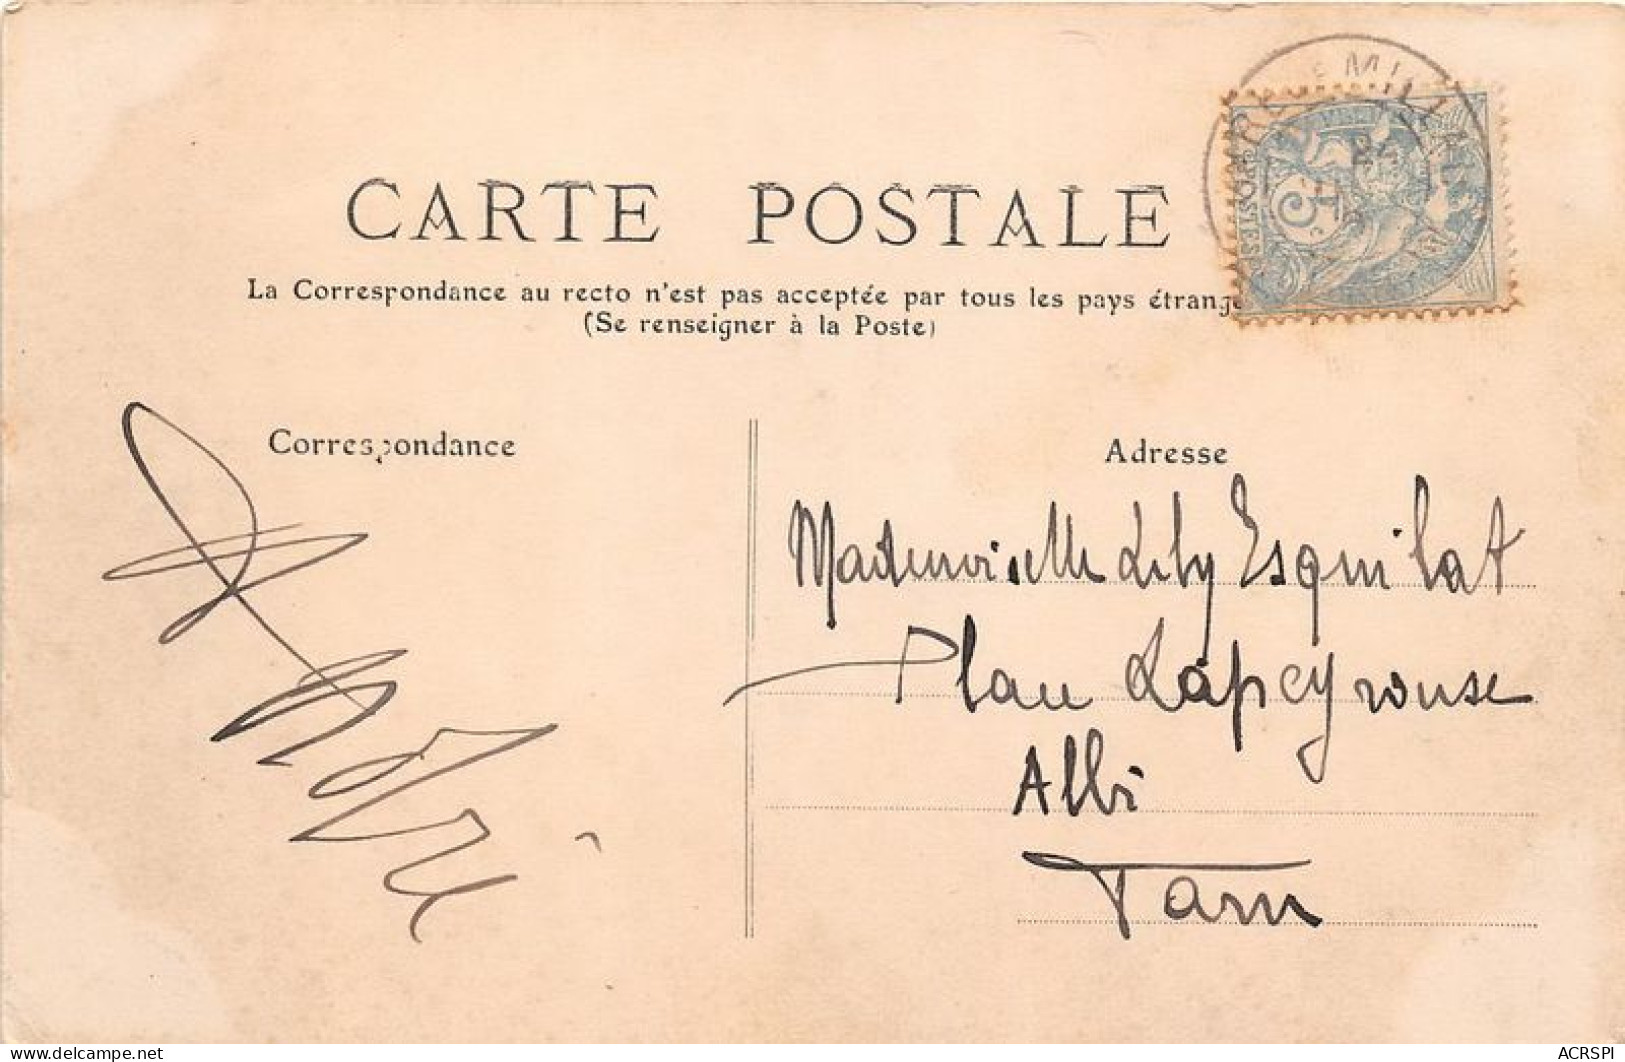 CARTE POSTALE
La Correspondance au recto n'est pas acceptée par tous les pays étrang
(Se renseigner à la Poste)
Correspondance
André
Adresse
Mademoiselle Lily Esquilat
Plan Lapeyrouse
Albi
Tarn
POSTES
5
delcampe.net
ACRSPI